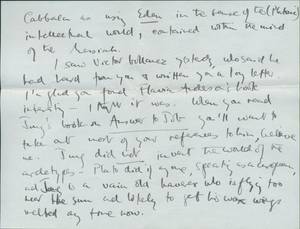 Cabbala as using Eden in the sense of the (Platonic)
intellectual world, contained within the mind
of the Messiah.
I saw Victor yesterday, who said he
had heard from you & written you a long letter
I'm glad you found Flavia Anderson's book
interesting – I thought it was. When you read
Jung's book on Answer to Job you'll want to
take out most of your references to him, believe
me. Jung did not invent the world of the
archetypes – Plato did if anyone, speaking as a European,
and Jung is a vain old man who is flying too
near the sun and likely to get his wax wings
melted any time now.